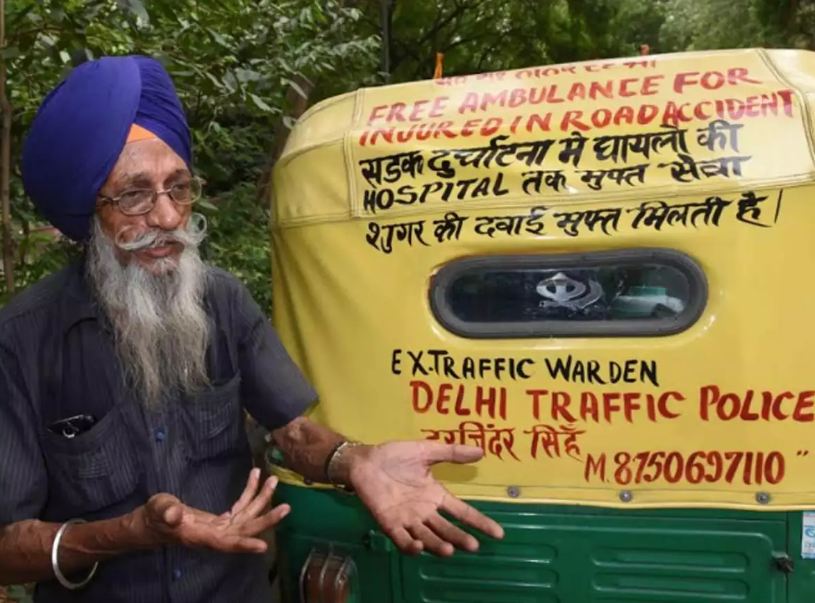 FREE AMBULANCE FOR
INJURED IN ROAD ACCIDENT
सड़क दुर्घाटना में घायलों की
HOSPITAL तक मुफ्त सेवा
शुगर की दवाई मुफ्त मिलती है।
EX.TRAFFIC WARDEN
DELHI TRAFFIC POLICE
हरजिंदर सिहँ
M.8750697110 "